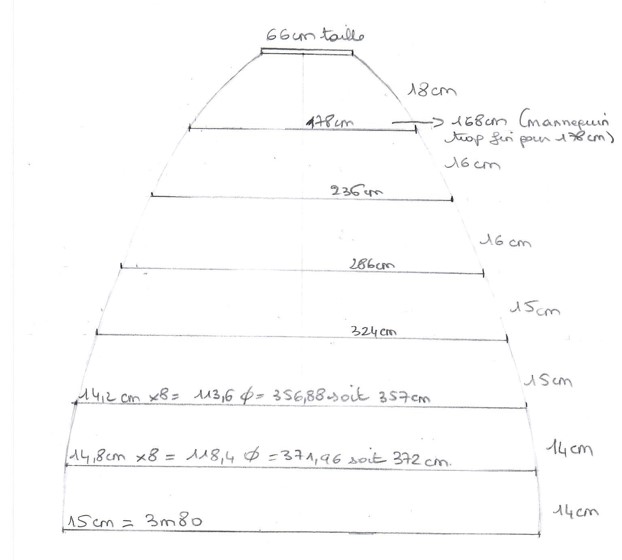 66cm taille
18cm
178cm → 168cm (mannequin
trop fin pour 178cm)
16cm
236cm
16cm
286cm
15cm
324cm
15cm
14,2 cm x8 = 113,6 φ = 356,88 soit 357cm
14cm
14,8cm x8 = 118,4 φ = 371,96 soit 372 cm.
14cm
15cm = 3m80